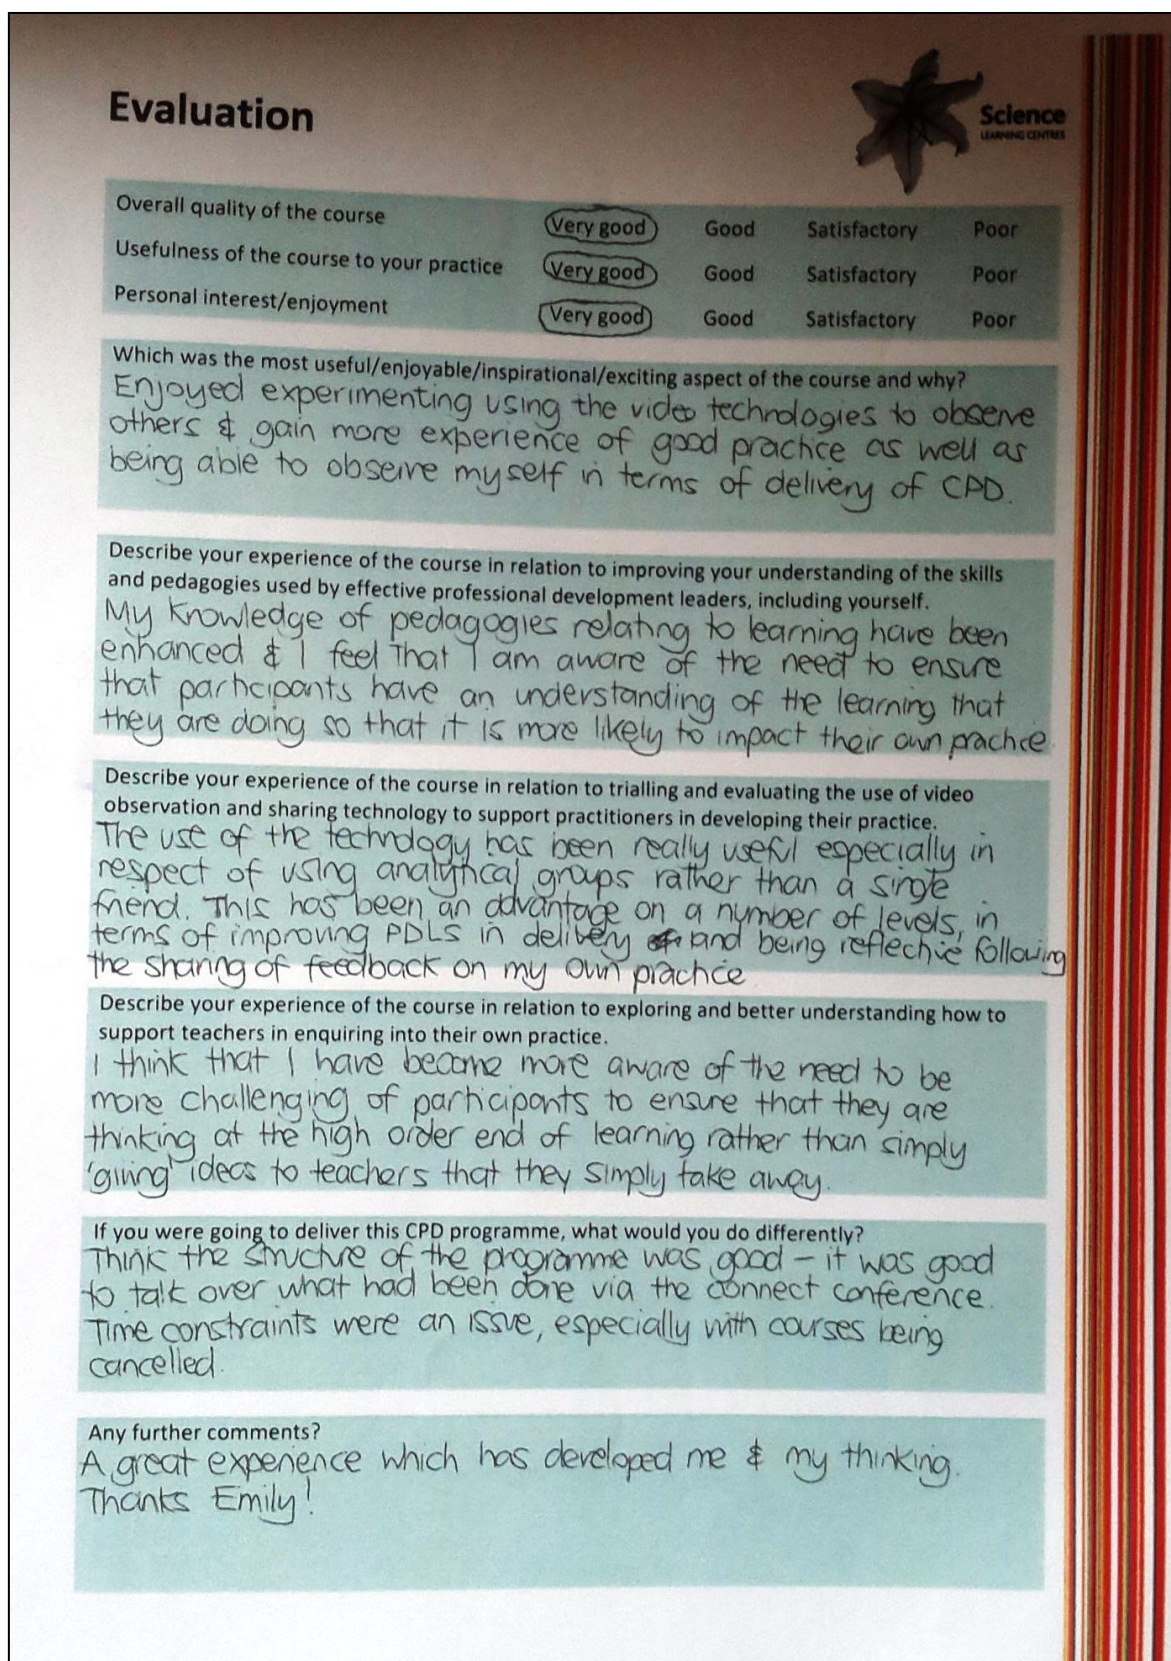 Evaluation
Science
LEARNING CENTRES
Overall quality of the course Very good Good Satisfactory Poor
Usefulness of the course to your practice Very good Good Satisfactory Poor
Personal interest/enjoyment Very good Good Satisfactory Poor
Which was the most useful/enjoyable/inspirational/exciting aspect of the course and why?
Enjoyed experimenting using the video technologies to observe
others & gain more experience of good practice as well as
being able to observe myself in terms of delivery of CPD.
Describe your experience of the course in relation to improving your understanding of the skills
and pedagogies used by effective professional development leaders, including yourself.
My knowledge of pedagogies relating to learning have been
enhanced & I feel that I am aware of the need to ensure
that participants have an understanding of the learning that
they are doing so that it is more likely to impact their own practice
Describe your experience of the course in relation to trialling and evaluating the use of video
observation and sharing technology to support practitioners in developing their practice.
The use of the technology has been really useful especially in
respect of using analytical groups rather than a single
friend. This has been an advantage on a number of levels, in
terms of improving PDLS in delivery and being reflective following
the sharing of feedback on my own practice
Describe your experience of the course in relation to exploring and better understanding how to
support teachers in enquiring into their own practice.
I think that I have become more aware of the need to be
more challenging of participants to ensure that they are
thinking at the high order end of learning rather than simply
'giving' ideas to teachers that they simply take away.
If you were going to deliver this CPD programme, what would you do differently?
Think the structure of the programme was good – it was good
to talk over what had been done via the connect conference.
Time constraints were an issue, especially with courses being
cancelled.
Any further comments?
A great experience which has developed me & my thinking.
Thanks Emily!